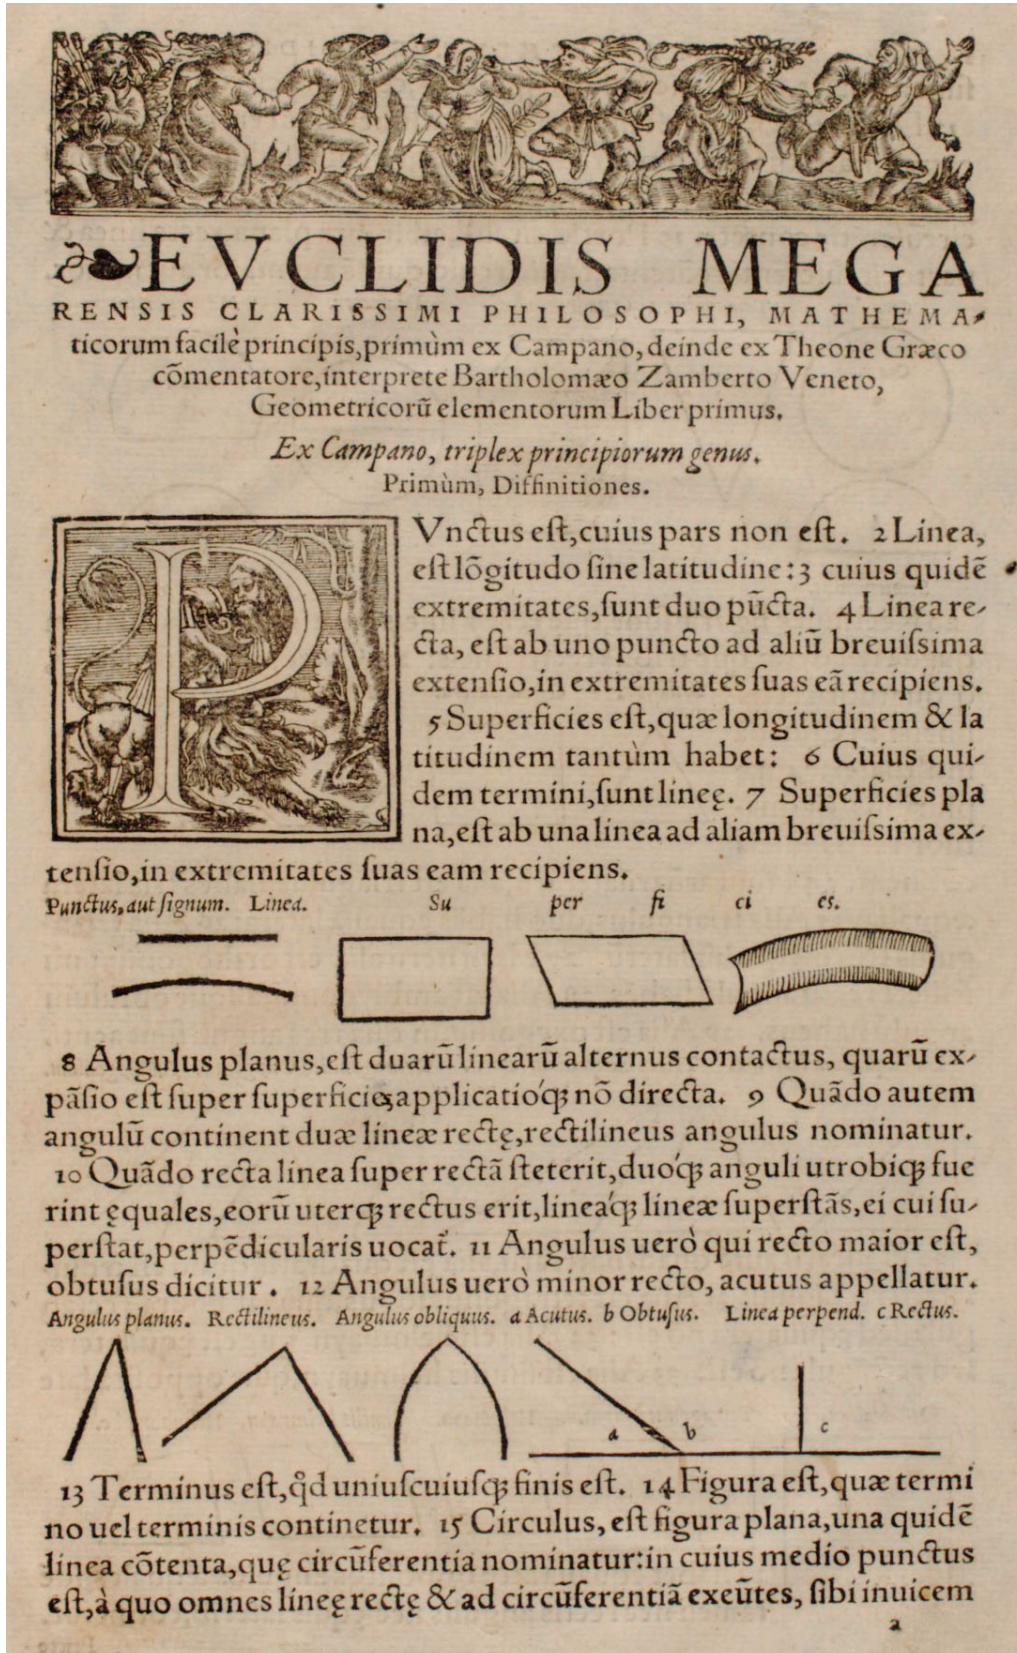 EVCLIDIS MEGA
RENSIS CLARISSIMI PHILOSOPHI, MATHEMA-
ticorum facilè principis, primùm ex Campano, deinde ex Theone Græco
cōmentatore, interprete Bartholomæo Zamberto Veneto,
Geometricorū elementorum Liber primus.
Ex Campano, triplex principiorum genus.
Primùm, Diffinitiones.
PVnctus est, cuius pars non est. 2 Linea,
est lōgitudo sine latitudine: 3 cuius quidē
extremitates, sunt duo pūcta. 4 Linea re-
cta, est ab uno puncto ad aliū breuissima
extensio, in extremitates suas eā recipiens.
5 Superficies est, quæ longitudinem & la
titudinem tantùm habet: 6 Cuius qui-
dem termini, sunt lineę. 7 Superficies pla
na, est ab una linea ad aliam breuissima ex-
tensio, in extremitates suas eam recipiens.
Punctus, aut signum. Linea. Su per fi ci es.
8 Angulus planus, est duarū linearū alternus contactus, quarū ex-
pāsio est super superficiē, applicatióqꝫ nō directa. 9 Quādo autem
angulū continent duæ lineæ rectę, rectilineus angulus nominatur.
10 Quādo recta linea super rectā steterit, duóqꝫ anguli utrobiqꝫ fue
rint ęquales, eorū uterqꝫ rectus erit, lineáqꝫ lineæ superstās, ei cui su-
perstat, perpēdicularis uocat̄. 11 Angulus uerò qui recto maior est,
obtusus dicitur. 12 Angulus uerò minor recto, acutus appellatur.
Angulus planus. Rectilineus. Angulus obliquus. a Acutus. b Obtusus. Linea perpend. c Rectus.
a b c
13 Terminus est, qd̄ uniuscuiusqꝫ finis est. 14 Figura est, quæ termi
no uel terminis continetur. 15 Circulus, est figura plana, una quidē
linea cōtenta, quę circūferentia nominatur: in cuius medio punctus
est, à quo omnes lineę rectę & ad circūferentiā exeūtes, sibi inuicem
a